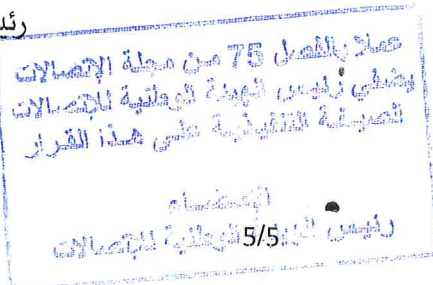 رئيـ
عملا بالفصل 75 من مجلة الإتصالات
يضفي رئيس الهيئة الوطنية للإتصالات
الصيغة التنفيذية على هذا القرار
الإمضاء
رئيس الهيئة الوطنية للإتصالات
5/5